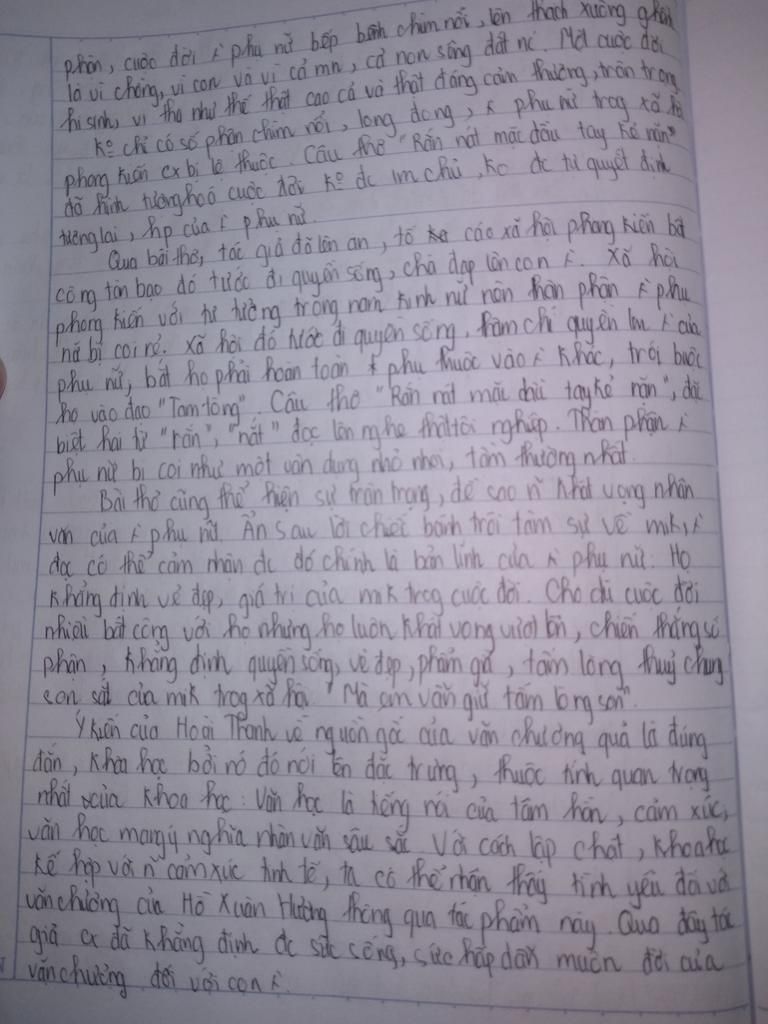 phận, cuộc đời ŕ phụ nữ bếp bênh chìm nổi, lên thác xuống ghềnh
là vì chồng, vì con và vì cả mn, cả non sông đất nc. Một cuộc đời
hi sinh, vị tha như thế thật cao cả và thật đáng cảm thương, trân trọng
Ko chỉ có số phận chìm nổi, long đong, ŕ phụ nữ trog xã hội
phong kiến cx bị lệ thuộc. Câu thơ "Rắn nát mặc dầu tay kẻ nặn"
đã hình tượng hoá cuộc đời ko đc làm chủ, ko đc tự quyết định
tương lai, hp của ŕ phụ nữ.
Qua bài thơ, tác giả đã lên án, tố cáo xã hội phong kiến bất
công tàn bạo đó tước đi quyền sống, chà đạp lên con ŕ. Xã hội
phong kiến với tư tưởng trọng nam khinh nữ nên thân phận ŕ phụ
nữ bị coi rẻ. Xã hội đó tước đi quyền sống, thậm chí quyền làm ŕ của
phụ nữ, bắt họ phải hoàn toàn phụ thuộc vào ŕ khác, trói buộc
họ vào đạo "Tam tòng". Câu thơ "Rắn nát mặc dầu tay kẻ nặn", đặc
biệt hai từ "rắn", "nát" đọc lên nghe thật tội nghiệp. Thân phận ŕ
phụ nữ bị coi như một vận dụng nhỏ nhoi, tầm thường nhất.
Bài thơ cũng thể hiện sự trân trọng, đề cao n~ khát vọng nhân
văn của ŕ phụ nữ. Ẩn sau lời chiếc bánh trôi tâm sự về mik, ŕ
đọc có thể cảm nhận đc đó chính là bản lĩnh của ŕ phụ nữ. Họ
khẳng định vẻ đẹp, giá trị của mik trog cuộc đời. Cho dù cuộc đời
nhiều bất công với họ nhưng họ luôn khát vọng vượt lên, chiến thắng số
phận, khẳng định quyền sống, vẻ đẹp, phẩm giá, tấm lòng thuỷ chung
son sắt của mik trog xã hội "Mà em vẫn giữ tấm lòng son".
Ý kiến của Hoài Thanh về nguồn gốc của văn chương quả là đúng
đắn, khoa học bởi nó đó nói lên đặc trưng, thuộc tính quan trọng
nhất của khoa học: Văn học là tiếng nói của tâm hồn, cảm xúc,
văn học mang ý nghĩa nhân văn sâu sắc. Với cách lập chất, khoa học
kế hợp với n~ cảm xúc tinh tế, ta có thể nhận thấy tình yêu đối với
văn chương của Hồ Xuân Hương thông qua tác phẩm này. Qua đây tác
giả cx đã khẳng định đc sức sống, sức hấp dẫn muôn đời của
văn chương đối với con ŕ.